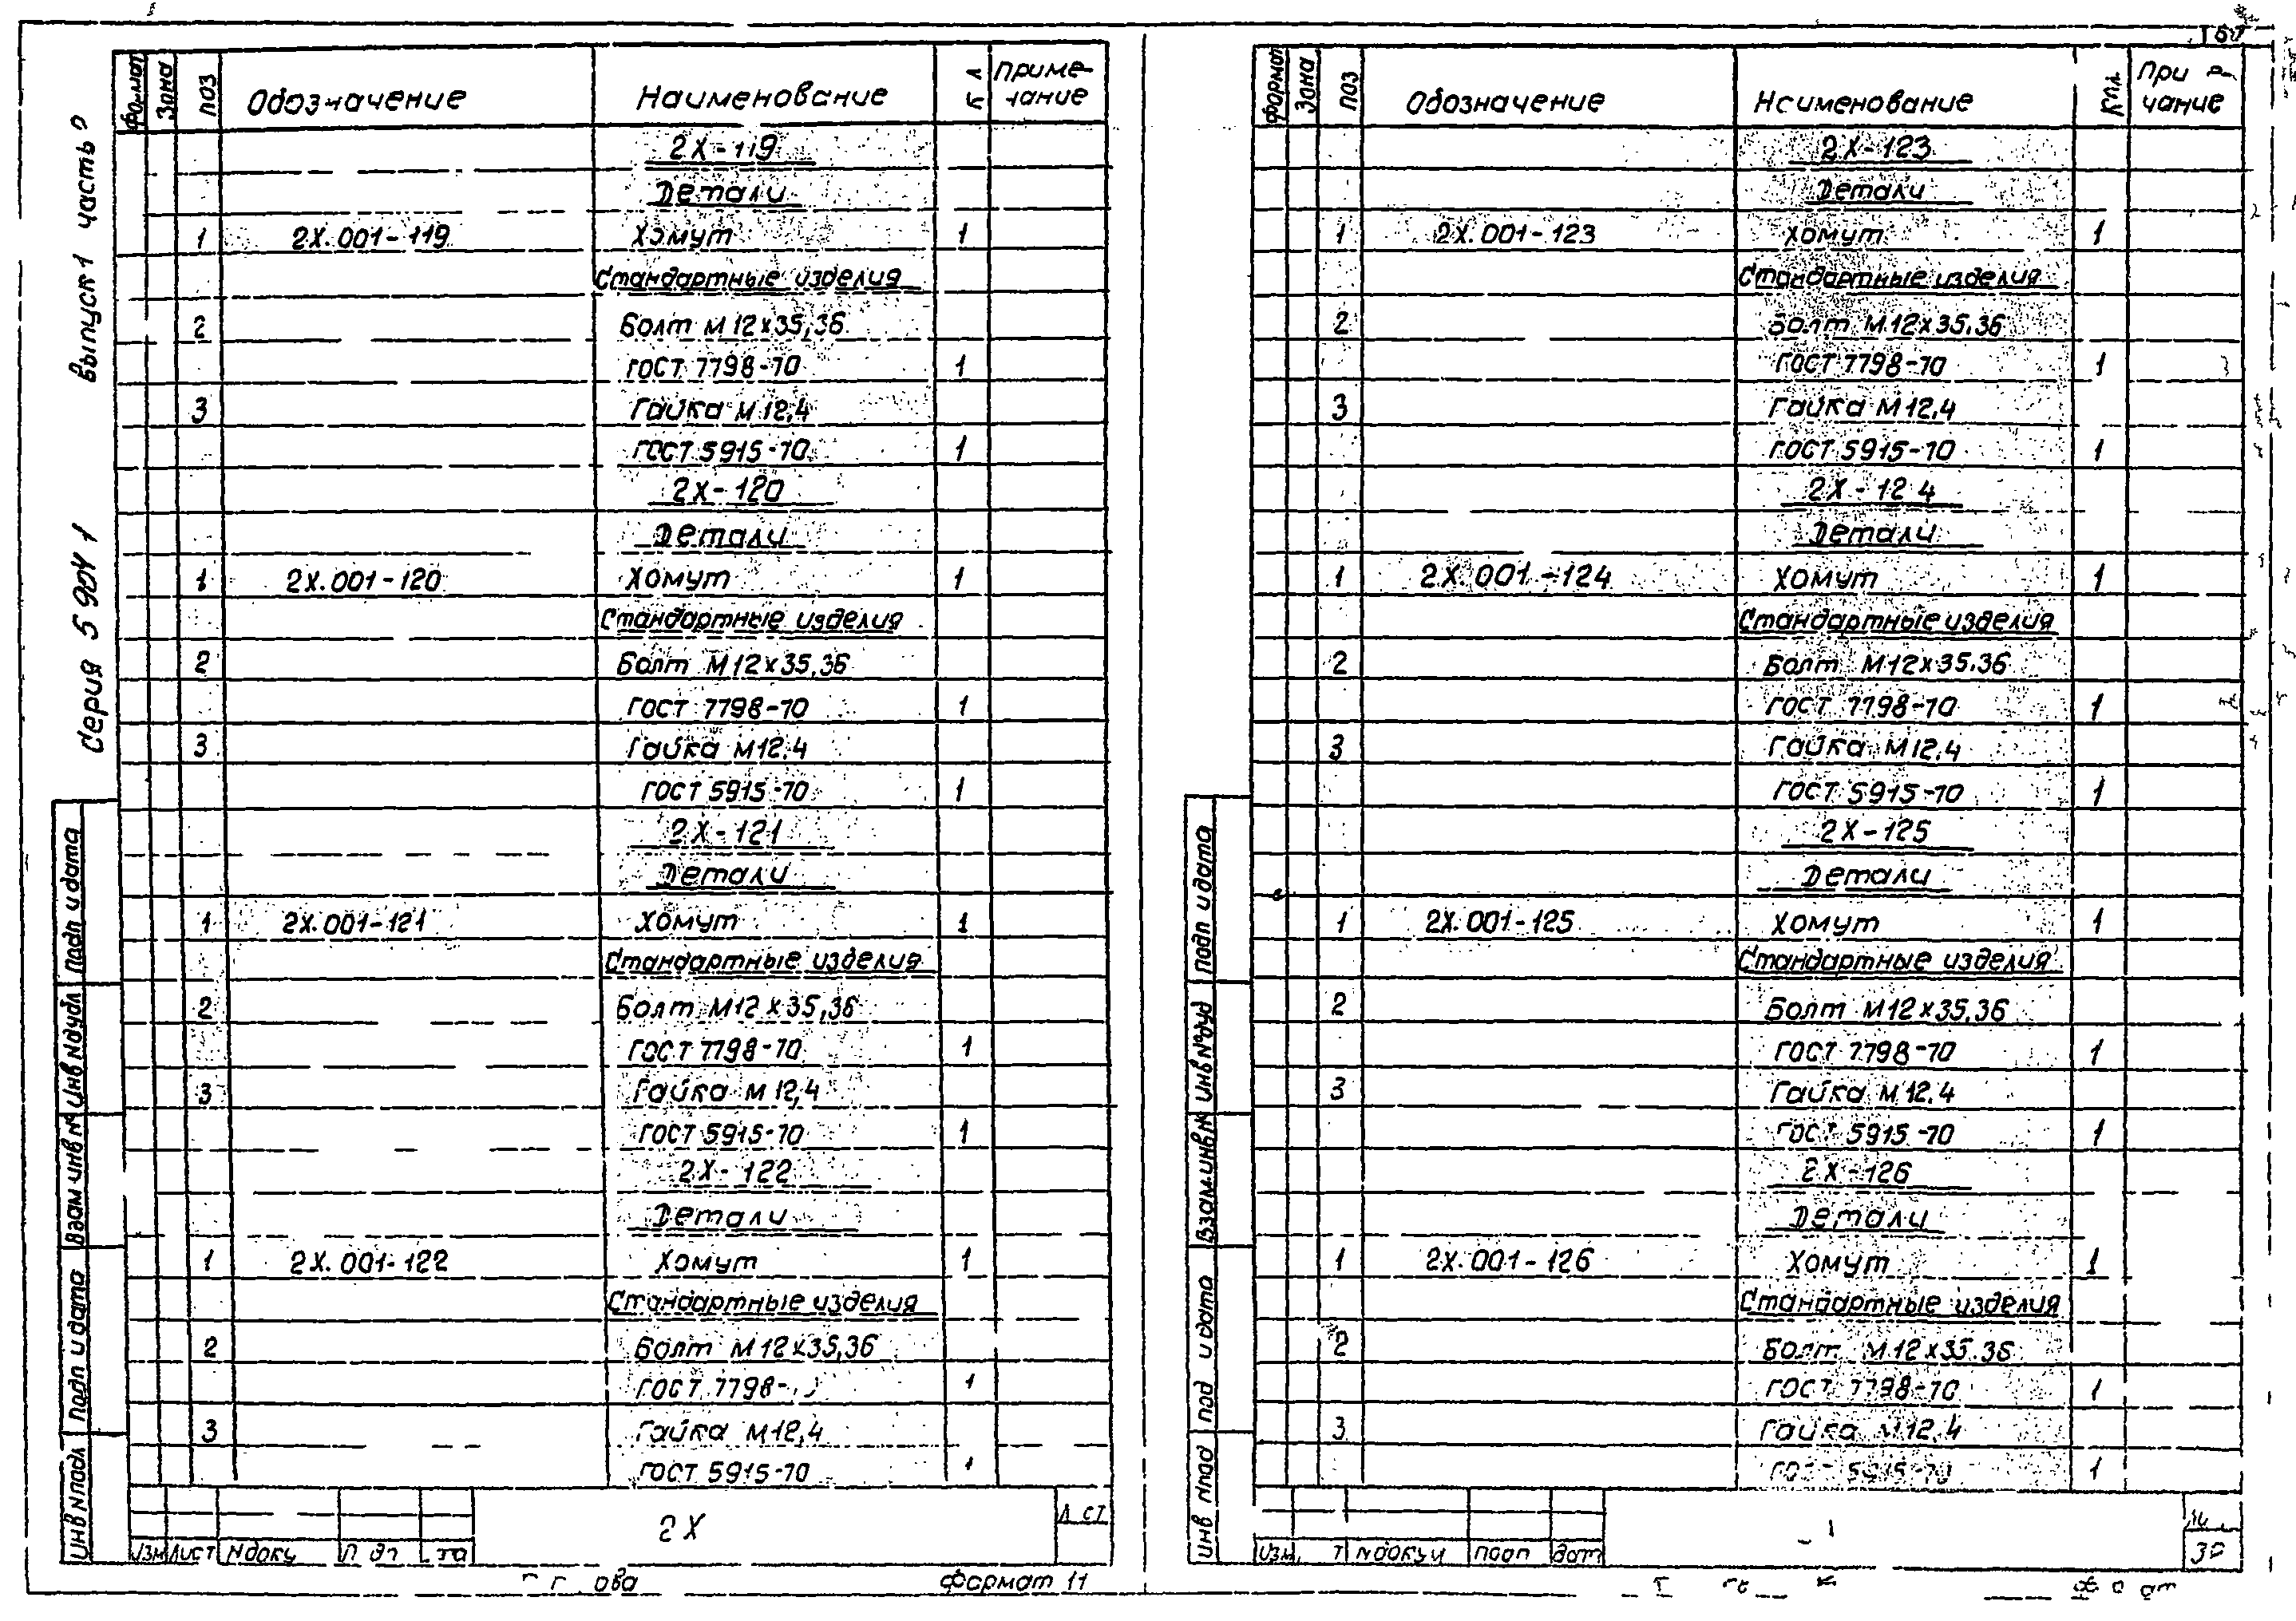 Серия 5 904 1 выпуск 1 часть
формат Зона поз Обозначение Наименование Приме-
чание
2Х-119
Детали
1 2Х.001-119 Хомут 1
Стандартные изделия
2 Болт М12х35,36
ГОСТ 7798-70 1
3 Гайка М12,4
ГОСТ 5915-70 1
2Х-120
Детали
1 2Х.001-120 Хомут 1
Стандартные изделия
2 Болт М12х35,36
ГОСТ 7798-70 1
3 Гайка М12.4
ГОСТ 5915-70 1
2Х-121
Детали
1 2Х.001-121 Хомут 1
Стандартные изделия
2 Болт М12х35,36
ГОСТ 7798-70 1
3 Гайка М12,4
ГОСТ 5915-70 1
2Х-122
Детали
1 2Х.001-122 Хомут 1
Стандартные изделия
2 Болт М12х35,36
ГОСТ 7798- 1
3 Гайка М12,4
ГОСТ 5915-70 1
подп и дата
инв Nдубл
Взам инв №
подп и дата
инв Nподл
2Х
Изм Лист Nдоку
Формат 11
формат Зона поз Обозначение Наименование Кпл. При
чание
2Х-123
Детали
1 2Х.001-123 Хомут 1
Стандартные изделия
2 Болт М12х35.36
ГОСТ 7798-70 1
3 Гайка М12.4
ГОСТ 5915-70 1
2Х-124
Детали
1 2Х.001-124 Хомут 1
Стандартные изделия
2 Болт М12х35.36
ГОСТ 7798-70 1
3 Гайка М12.4
ГОСТ 5915-70 1
2Х-125
Детали
1 2Х.001-125 Хомут 1
Стандартные изделия
2 Болт М12х35.36
ГОСТ 7798-70 1
3 Гайка М12.4
ГОСТ 5915-70 1
2Х-126
Детали
1 2Х.001-126 Хомут 1
Стандартные изделия
2 Болт М12х35.36
ГОСТ 7798-70 1
3 Гайка М12.4
ГОСТ 5915-70 1
подп и дата
инв №дуб
Взам.инв.№
под и дата
инв Nпод
Изм. Nдокум подп дат